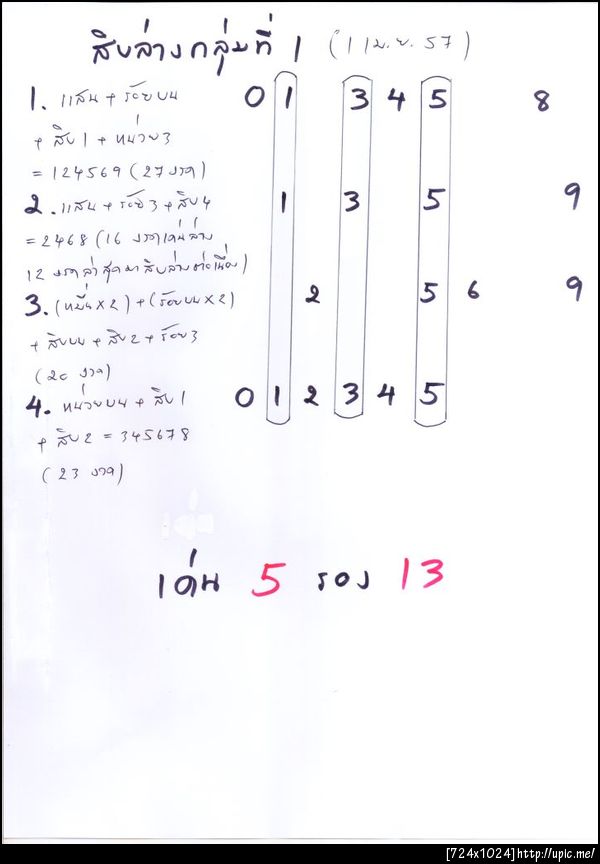 สิบล่างกลุ่มที่ 1 (1 เม.ย. 57)
1. แสน + ร้อยบน 0 1 3 4 5 8
+ สิบ1 + หน่วย3
= 124569 (27 งวด)
2. แสน + ร้อย3 + สิบ4 1 3 5 9
= 2468 (16 งวดเด่นล่าง
12 งวดล่าสุดมาสิบล่างต่อเนื่อง)
3. (หมื่นx2) + (ร้อยบนx2) 2 5 6 9
+ สิบบน + สิบ2 + ร้อย3
(20 งวด)
4. หน่วยบน + สิบ1 0 1 2 3 4 5
+ สิบ2 = 345678
(23 งวด)
เด่น 5 รอง 13
[724x1024]http://upic.me/